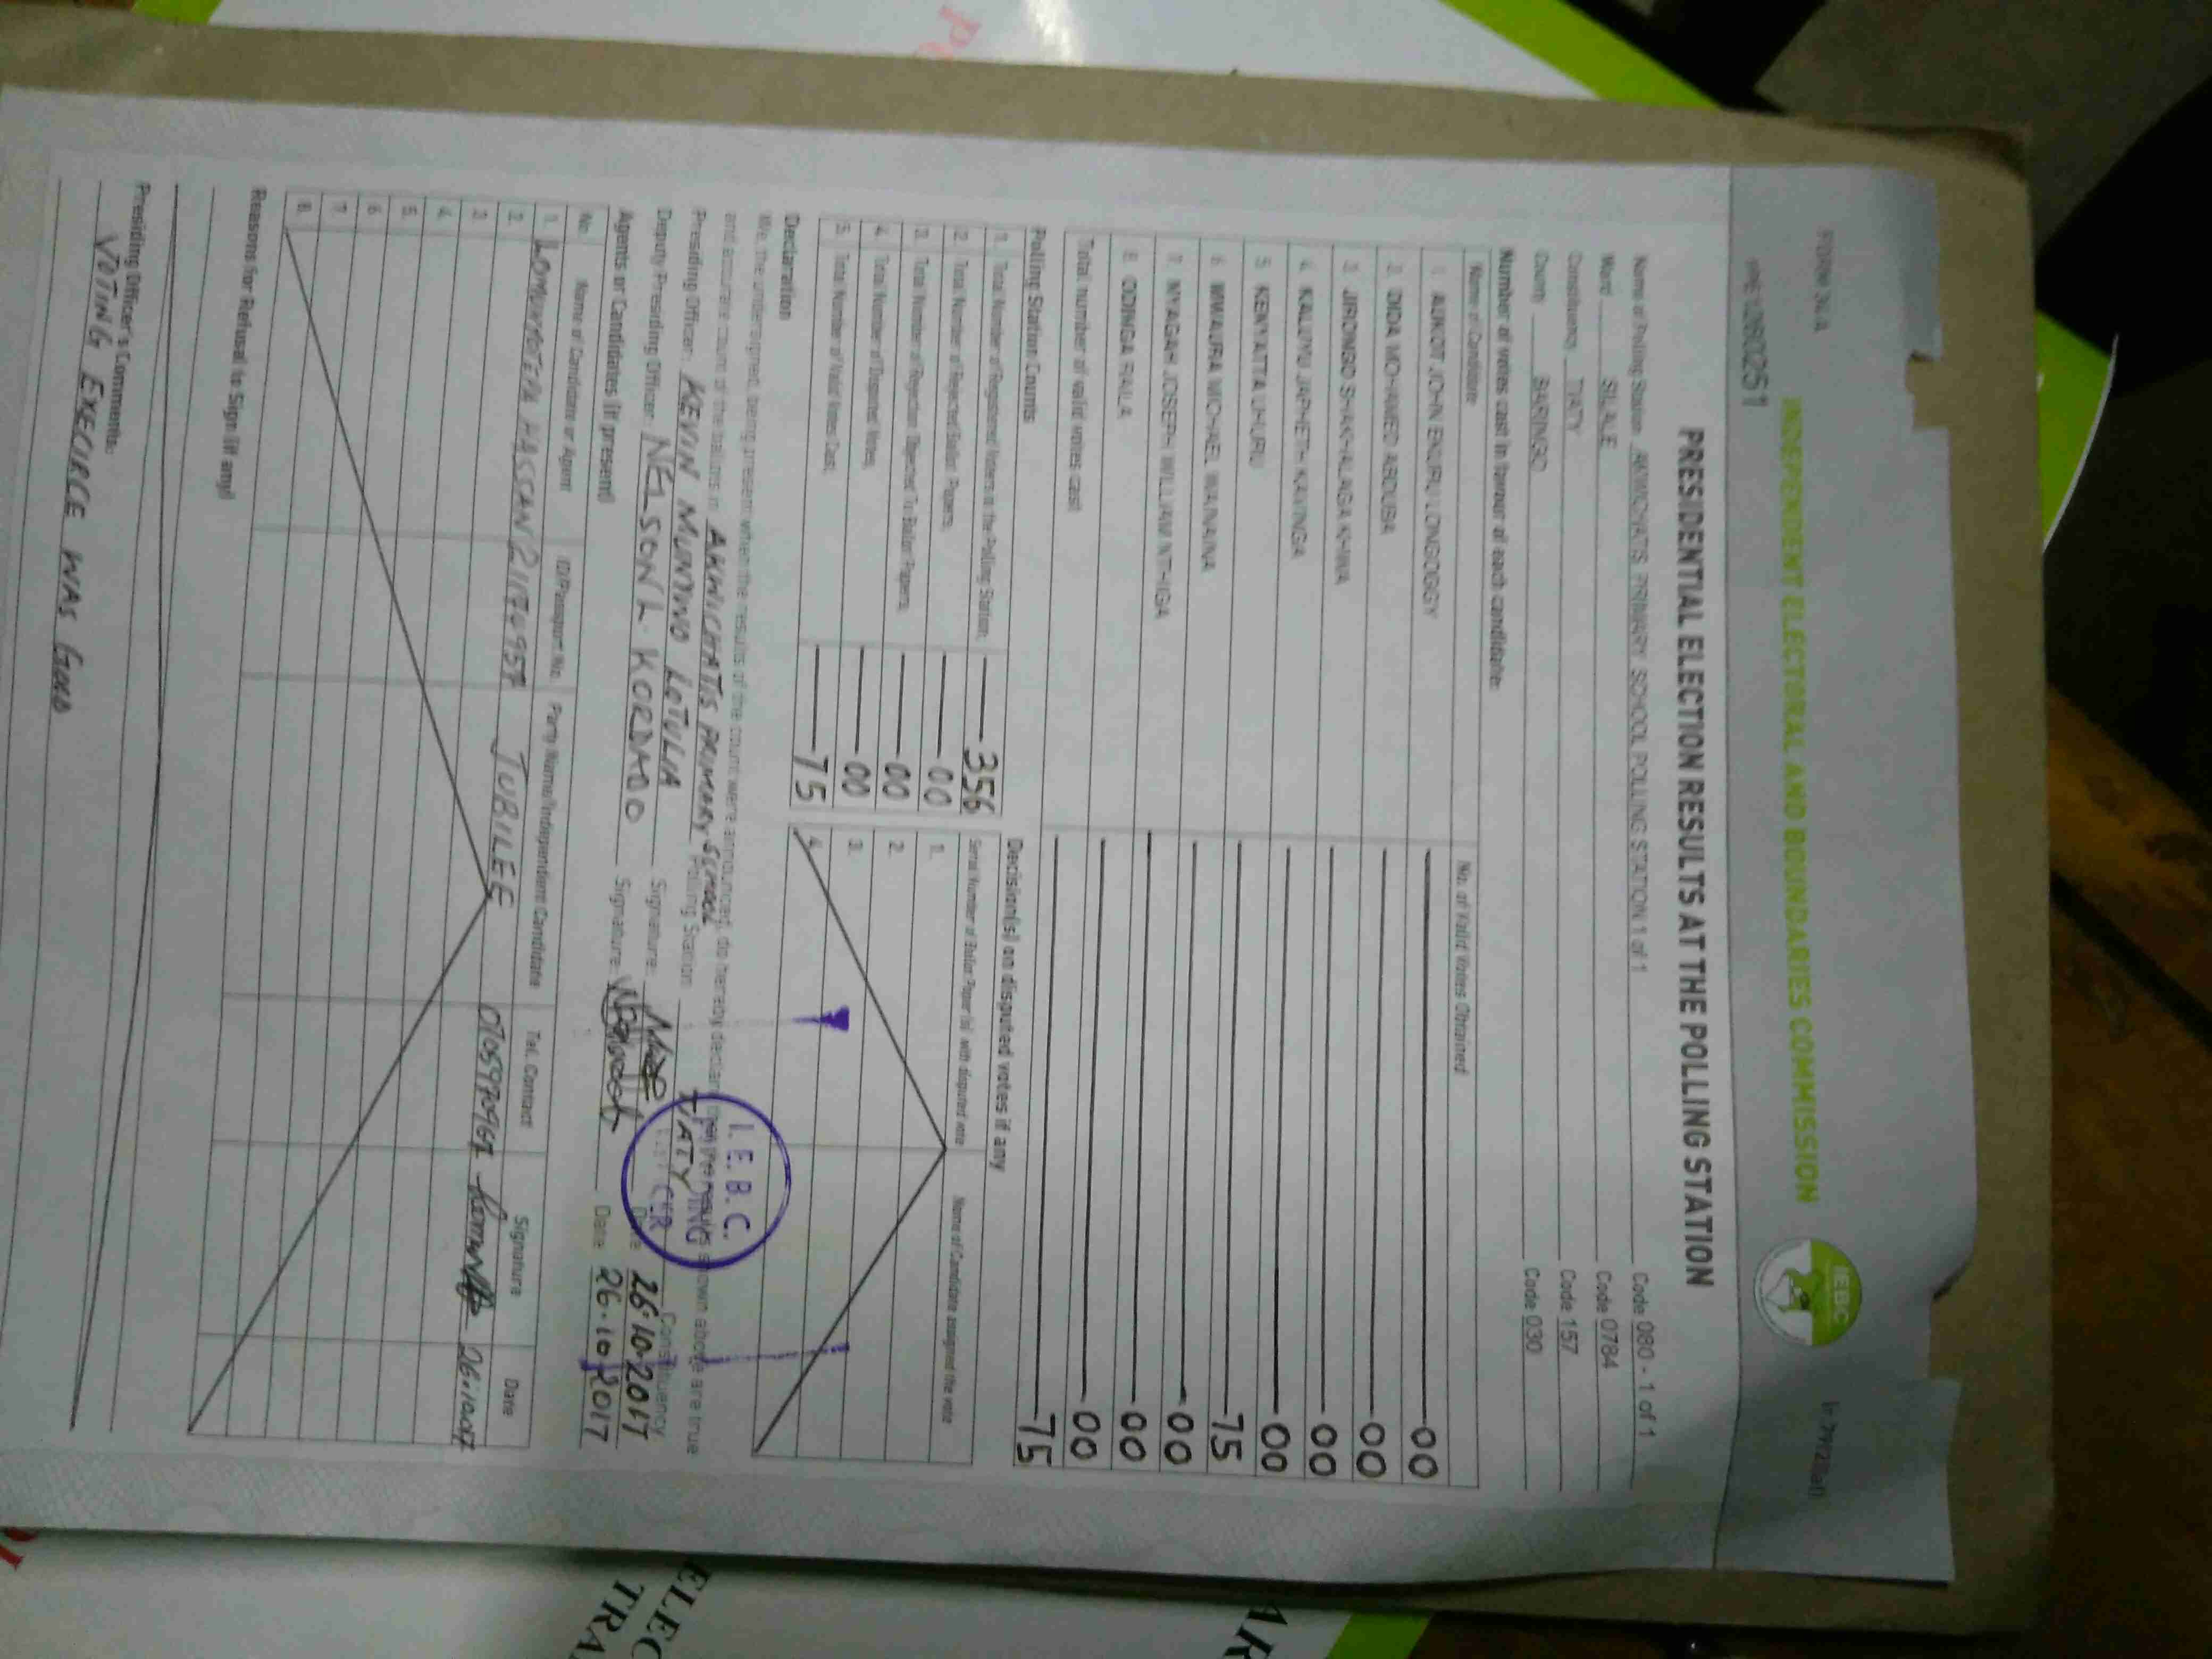 FORM 34A
INDEPENDENT ELECTORAL AND BOUNDARIES COMMISSION
IEBC
PRESIDENTIAL ELECTION RESULTS AT THE POLLING STATION
Name of Polling Station AKWICHATIS PRIMARY SCHOOL POLLING STATION 1 of 1 Code 080 - 1 of 1
Ward SILALE Code 0784
Constituency TIATY Code 157
County BARINGO Code 030
Number of votes cast in favour of each candidate:
Name of Candidate No. of Valid Votes Obtained
1. AUKOT JOHN EKURU LONGOGGY 00
2. DIDA MOHAMED ABDUBA 00
3. JIRONGO SHAKHALAGA KHWA 00
4. KALUYU JAPHETH KAVINGA 00
5. KENYATTA UHURU 75
6. MWAURA MICHAEL WAINAINA 00
7. NYAGAH JOSEPH WILLIAM NTHIGA 00
8. ODINGA RAILA 00
Total number of valid votes cast 75
Polling Station Counts
1. Total Number of Registered Voters in the Polling Station 356
2. Total Number of Rejected Ballot Papers 00
3. Total Number of Rejection Objected To Ballot Papers 00
4. Total Number of Disputed Votes 00
5. Total Number of Valid Votes Cast 75
Decision(s) on disputed votes if any
Serial Number of Ballot Paper (s) with disputed vote Name of Candidate assigned the vote
1.
2.
3.
4.
Declaration
We, the undersigned, being present when the results of the count were announced, do hereby declare that the results shown above are true
and accurate count of the ballots in AKWICHATIS PRIMARY SCHOOL Polling Station TIATY Constituency
Presiding Officer: KEVIN MUNYWO LOTULIA Signature: Date 26.10.2017
Deputy Presiding Officer: NELSON L. KORDADO Signature: Date 26.10.2017
I. E. B. C.
Agents of Candidates (if present)
No. Name of Candidate or Agent ID/Passport No. Party Name/Independent Candidate Tel. Contact Signature Date
1. HASSAN 21174957 JUBILEE
2.
3.
4.
5.
6.
7.
8.
Reasons for Refusal to Sign (if any)
Presiding Officer's Comments:
VOTING EXECIRCE WAS GOOD
ELEC
TRA
AR